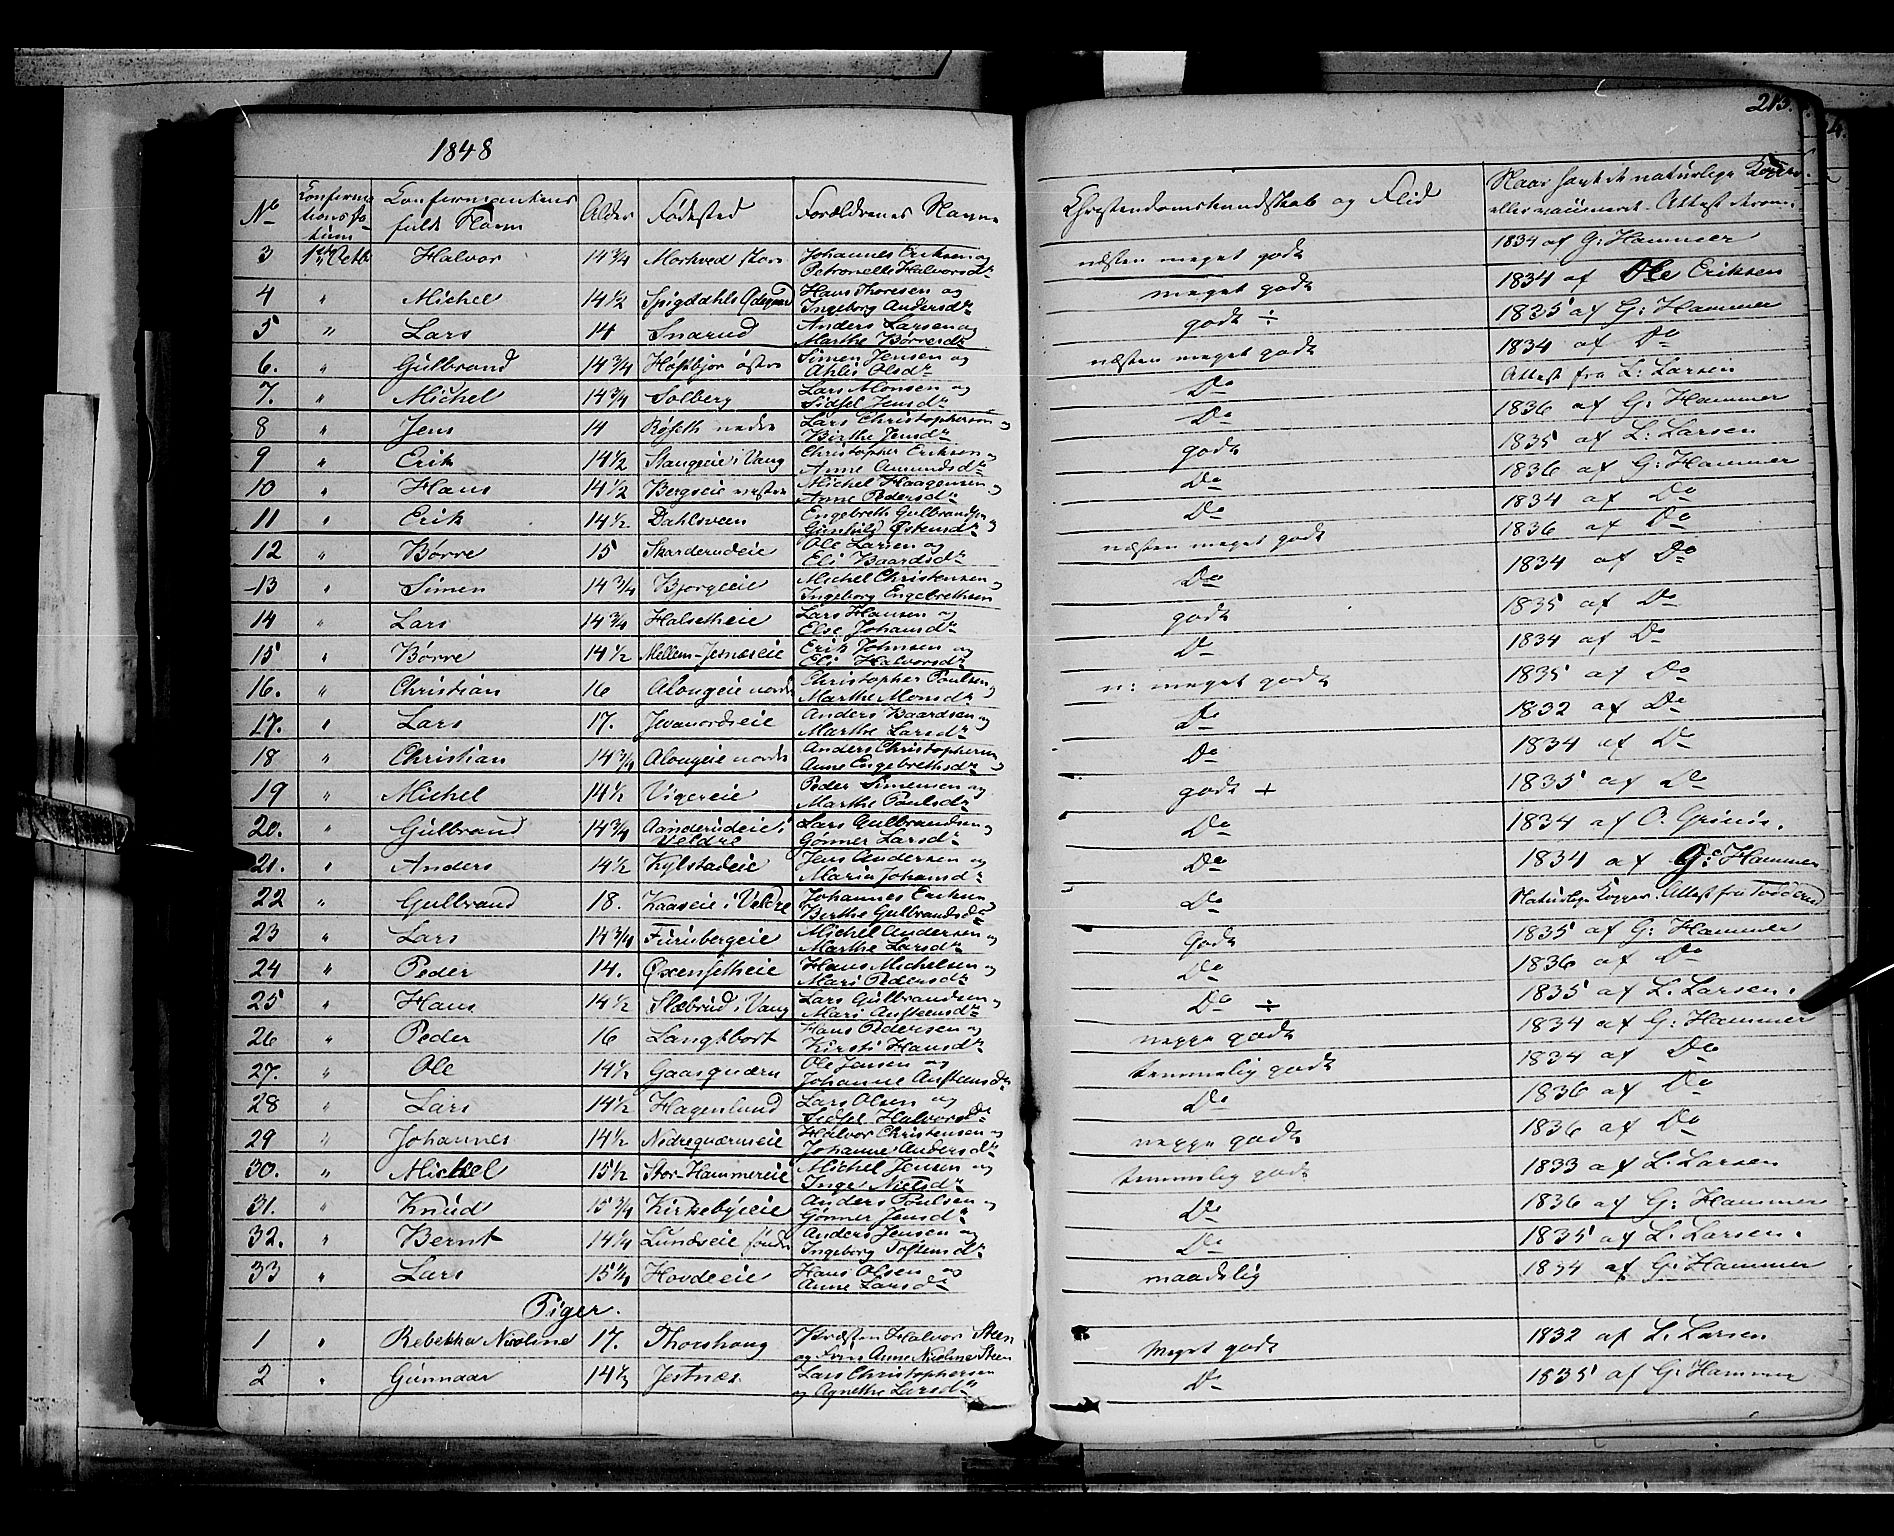 213.
1848
No Confirmationsdatum Confirmandens fulde Navn Alder Fødested Forældrenes Navne Christendomskundskab og Flid Naar havt de naturlige Kopper eller vaccineret. Attest derom.
3 1ste Octb Halvor 14 3/4 Morkved store Johannes Eriksen og Petronelle Halvorsdr næsten meget godt 1834 af G: Hammer
4 " Michel 14 1/2 Spigdahls Ødegaard Hans Thoresen og Ingeborg Andersdr meget godt 1834 af Ole Eriksen
5 " Lars 14 Snarud Anders Larsen og Marthe Børresdr godt ÷ 1835 af G: Hammer
6. " Gulbrand 14 3/4 Høsbjør østre Simen Jensen og Ahlis Olsdr næsten meget godt 1834 af Do
7. " Michel 14 3/4 Solberg Lars Monsen og Sidsel Jensdr Do Attest fra L: Larsen
8 " Jens 14 Røseth nedre Lars Christophersen og Birthe Jensdr Do 1836 af G: Hammer
9 " Erik 14 1/2 Stangeeie i Vang Christopher Eriksen og Anne Amundsdr godt 1835 af L: Larsen
10 " Hans 14 1/2 Bergseie vestre Michel Haagensen og Anne Pedersdr Do 1836 af G: Hammer
11 " Erik 14 1/2 Dahlsveen Engebreth Gulbrandsen og Gunhild Østensdr Do 1834 af Do
12 " Børre 15 Skarderudeie Ole Larsen og Eli Baardsdr næsten meget godt 1836 af Do
13 " Simen 14 3/4 Bjørgeeie Michel Christensen og Ingeborg Engebrethsen Do 1834 af Do
14 " Lars 14 3/4 Halsetheie Lars Hansen og Else Johansdr godt 1835 af Do
15 " Børre 14 1/2 Mellem-Jesnæseie Erik Johnsen og Eli Halvorsdr Do 1834 af Do
16. " Christian 16 Alongeie nordre Christopher Paulsen og Marthe Monsdr n: meget godt 1835 af Do
17. " Lars 17. Jevanordseie Anders Baardsen og Marthe Larsdr Do 1832 af Do
18 " Christian 14 3/4 Alongeie nordre Anders Christophersen og Anne Engebrethsdr Do 1834 af Do
19 " Michel 14 1/2 Vigereie Peder Simensen og Marthe Paulsdr godt + 1835 af Do
20. " Gulbrand 14 3/4 Aanderudeie i Veldre Lars Gulbrandsen og Gønner Larsdr Do 1834 af O. Grinis.
21. " Anders 14 1/2 Kylstadeie Jens Andersen og Maria Johansdr Do 1834 af G: Hammer
22 " Gulbrand 18. Kaaseie i Veldre Johannes Eriksen og Berthe Gulbrandsdr Do Naturlige Kopper. Attest fra
23 " Lars 14 3/4 Furubergeie Michel Andersen og Marthe Larsdr Godt 1835 af G: Hammer
24 " Peder 14. Øxensetheie Hans Michelsen og Mari Pedersdr Do 1836 af Do
25 " Hans 14 1/2 Slæbrud i Vang Lars Gulbrandsen og Mari Anstensdr Do ÷ 1835 af L. Larsen.
26 " Peder 16 Langtbort Hans Pedersen og Kirsti Hansdr neppe godt 1834 af G: Hammer
27. " Ole 14 1/2 Gaasquærn Ole Jensen og Johanne Anstensdr temmelig godt 1834 af Do
28 " Lars 14 1/2 Hagenlund Lars Olsen og Sidsel Halvorsdr Do 1836 af Do
29 " Johannes 14 1/2 Nedrequærneie Halvor Christensen og Johanne Andersdr neppe godt 1836 af Do
30. " Michel 15 1/2 Stor-Hammereie Michel Jensen og Inger Nielsdr temmelig godt 1833 af L. Larsen
31. " Knud 15 3/4 Kirkebyeie Anders Poulsen og Gønner Jensdr Do 1836 af G: Hammer
32. " Bernt 14 1/4 Lundseie søndre Anders Jensen og Ingeborg Tostensdr Do 1835 af L. Larsen.
33 " Lars 15 1/4 Hovdeeie Hans Olsen og Anne Larsdr maadelig 1834 af G: Hammer
Piger.
1 " Rebekka Nicoline 17. Thorshoug Præsten Halvor Steen og Frue Anne Nicoline Steen Meget godt 1832 af L. Larsen
2 " Gunnaar 14 1/2 Jestnæs Lars Christophersen og Agnethe Larsdr Do 1835 af G: Hammer